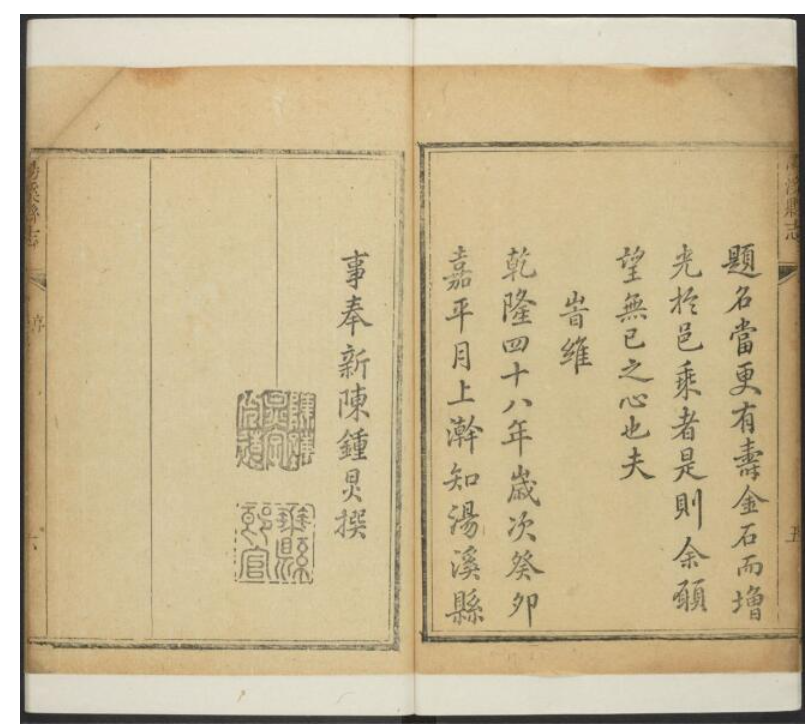 湯溪縣志
五
題名當更有壽金石而增
光扵邑乗者是則余願
望無已之心也夫
旹維
乾隆四十八年歲次癸夘
嘉平月上澣知湯溪縣
事奉新陳鍾炅撰
湯溪縣志
序
六